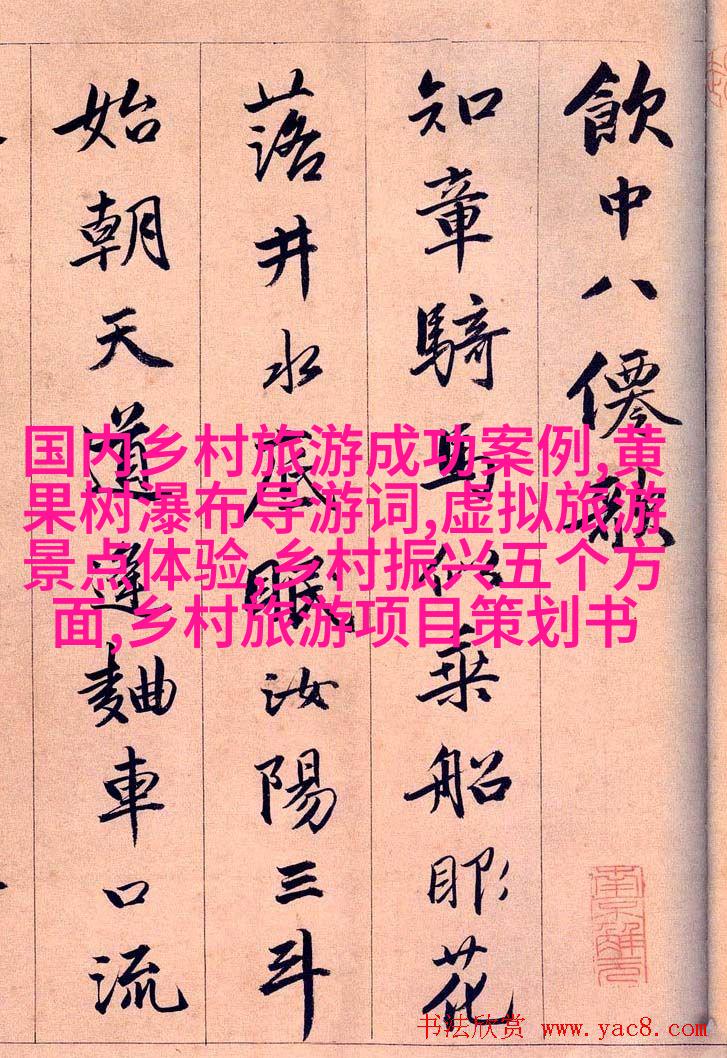 飲中八僊歌
知章騎馬似乗船眼花
落井水底眠汝陽三斗
始朝天道逢麯車口流
国内乡村旅游成功案例,黄
果树瀑布导游词,虚拟旅游
景点体验,乡村振兴五个方
面,乡村旅游项目策划书
南京解元
书法欣赏 www.yac8.com